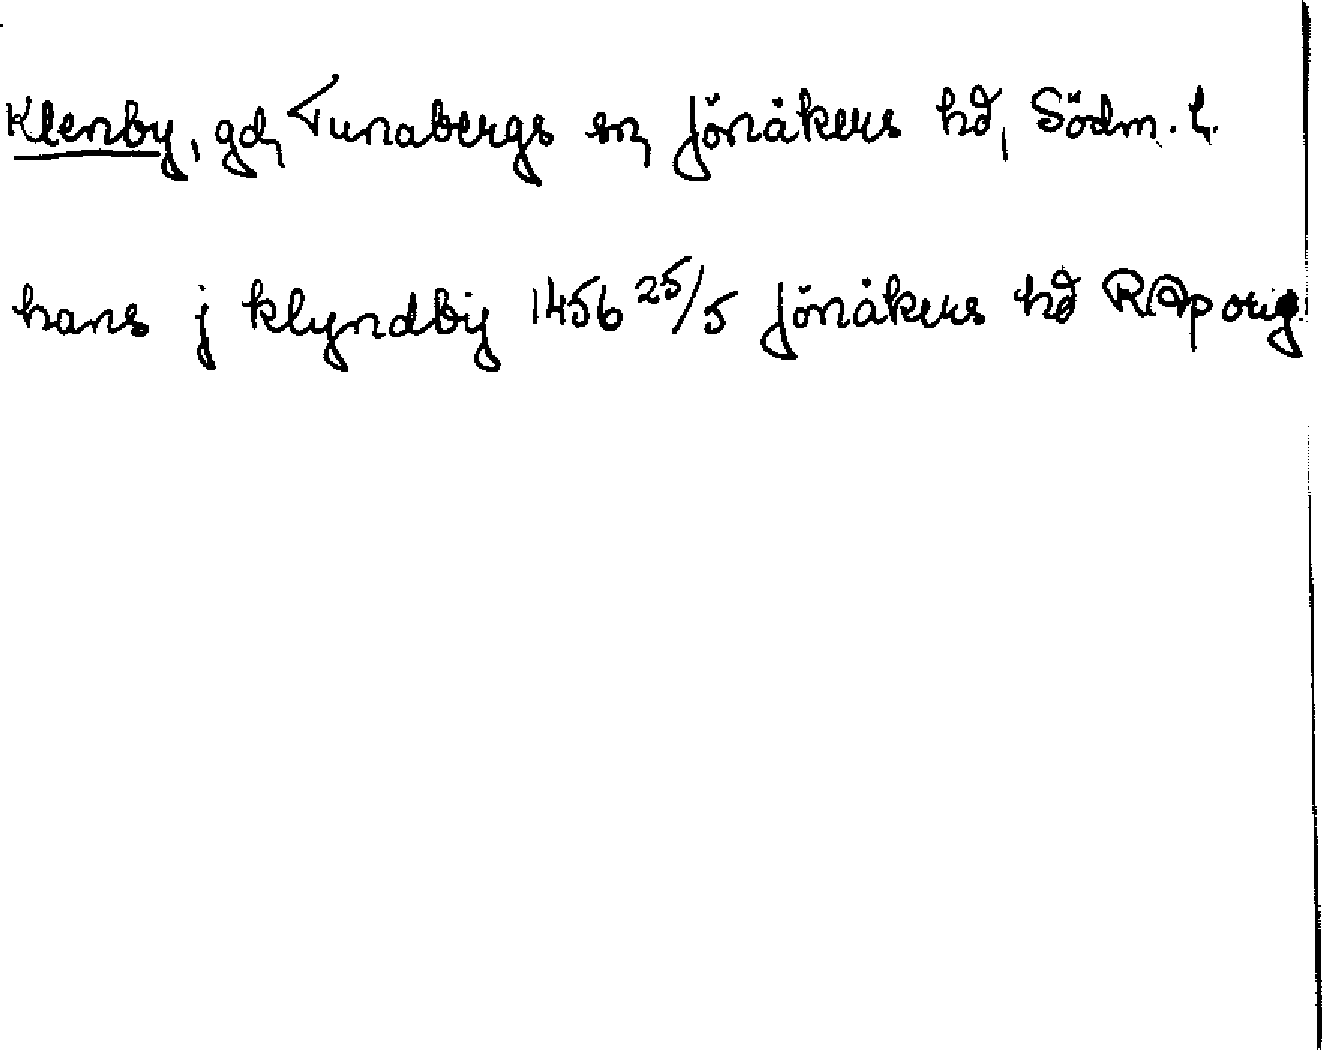 Klenby, gd, Tunabergs sn, Jönåkers hd, Södm. l.
hans j klyndby 1456 25/5 Jönåkers hd RAp orig.